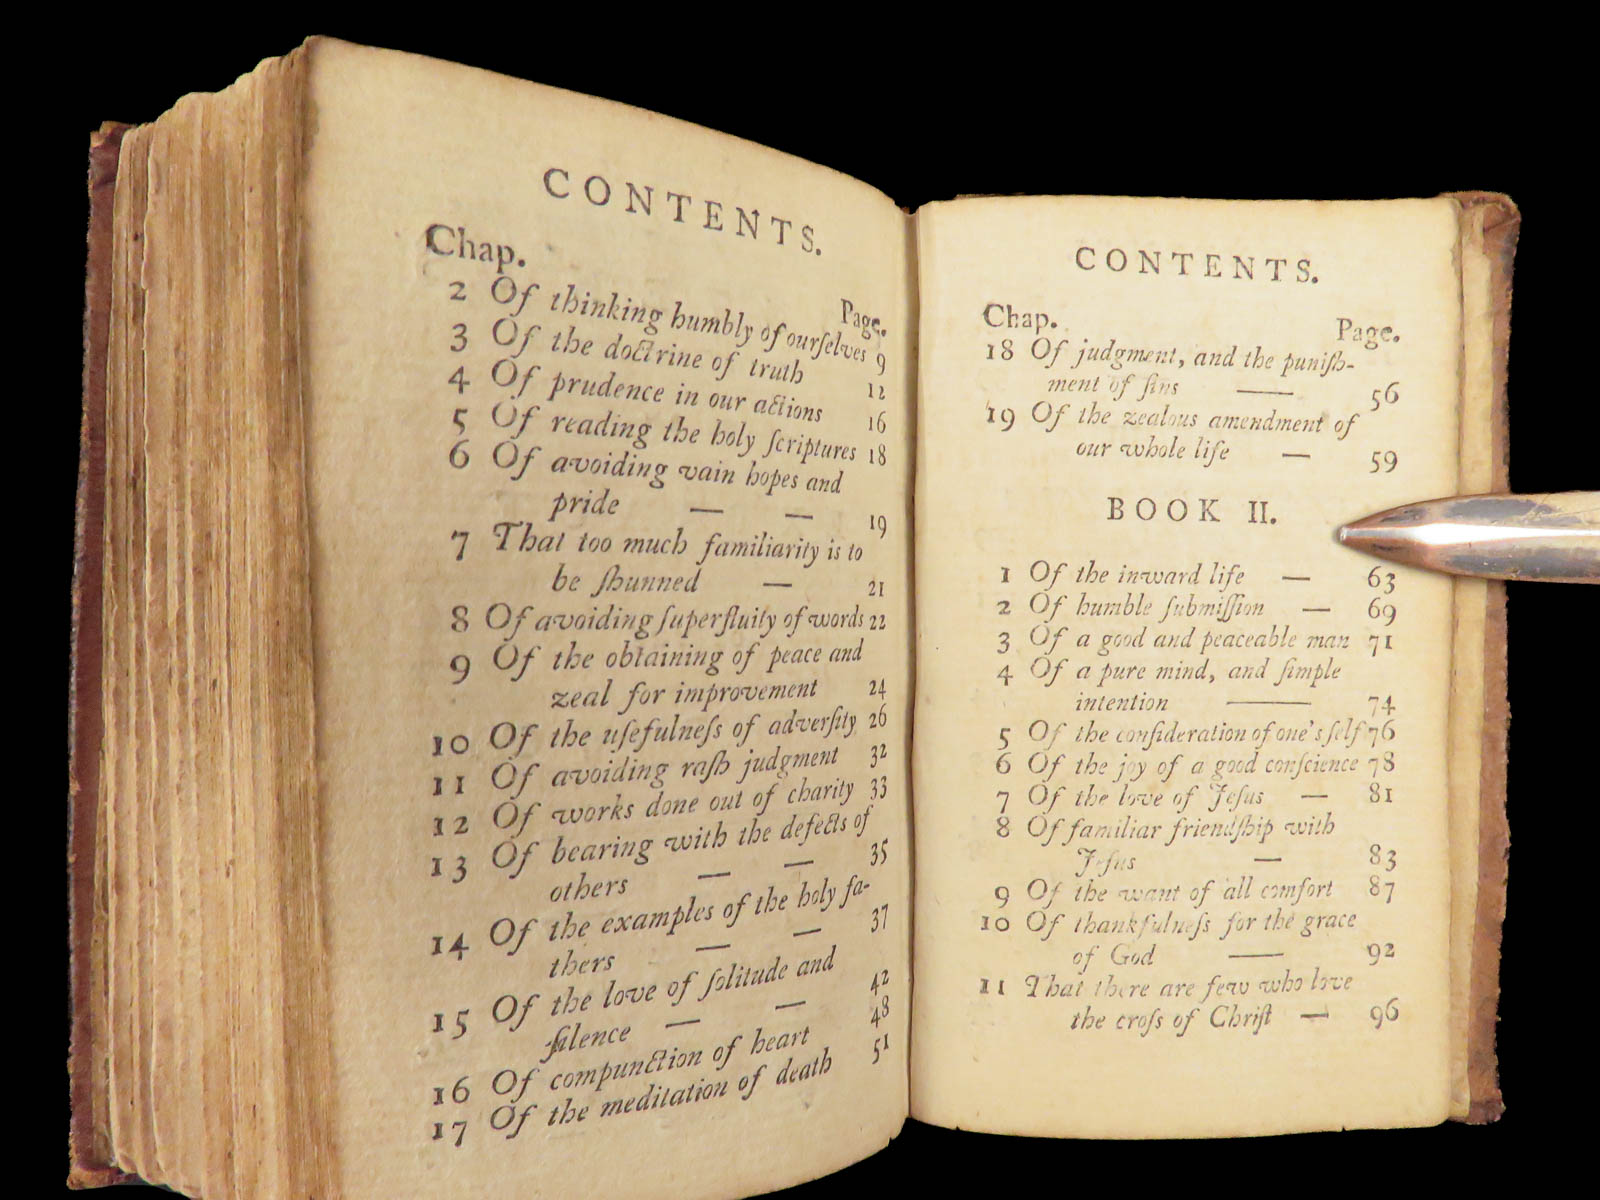 CONTENTS.
Chap.
Page.
2 Of thinking humbly of ourſelves 9
3 Of the doctrine of truth 12
4 Of prudence in our actions 16
5 Of reading the holy ſcriptures 18
6 Of avoiding vain hopes and
pride — — 19
7 That too much familiarity is to
be ſhunned — 21
8 Of avoiding ſuperfluity of words 22
9 Of the obtaining of peace and
zeal for improvement 24
10 Of the uſefulneſs of adverſity 26
11 Of avoiding raſh judgment 32
12 Of works done out of charity 33
13 Of bearing with the defects of
others — — 35
14 Of the examples of the holy fa-
thers — — 37
15 Of the love of ſolitude and
ſilence — — 42
16 Of compunction of heart 48
17 Of the meditation of death 51
CONTENTS.
Chap.
Page.
18 Of judgment, and the puniſh-
ment of ſins — 56
19 Of the zealous amendment of
our whole life — 59
BOOK II.
1 Of the inward life — 63
2 Of humble ſubmiſſion — 69
3 Of a good and peaceable man 71
4 Of a pure mind, and ſimple
intention — 74
5 Of the conſideration of one's ſelf 76
6 Of the joy of a good conſcience 78
7 Of the love of Jeſus — 81
8 Of familiar friendſhip with
Jeſus — 83
9 Of the want of all comfort 87
10 Of thankfulneſs for the grace
of God — 92
11 That there are few who love
the croſs of Chriſt — 96